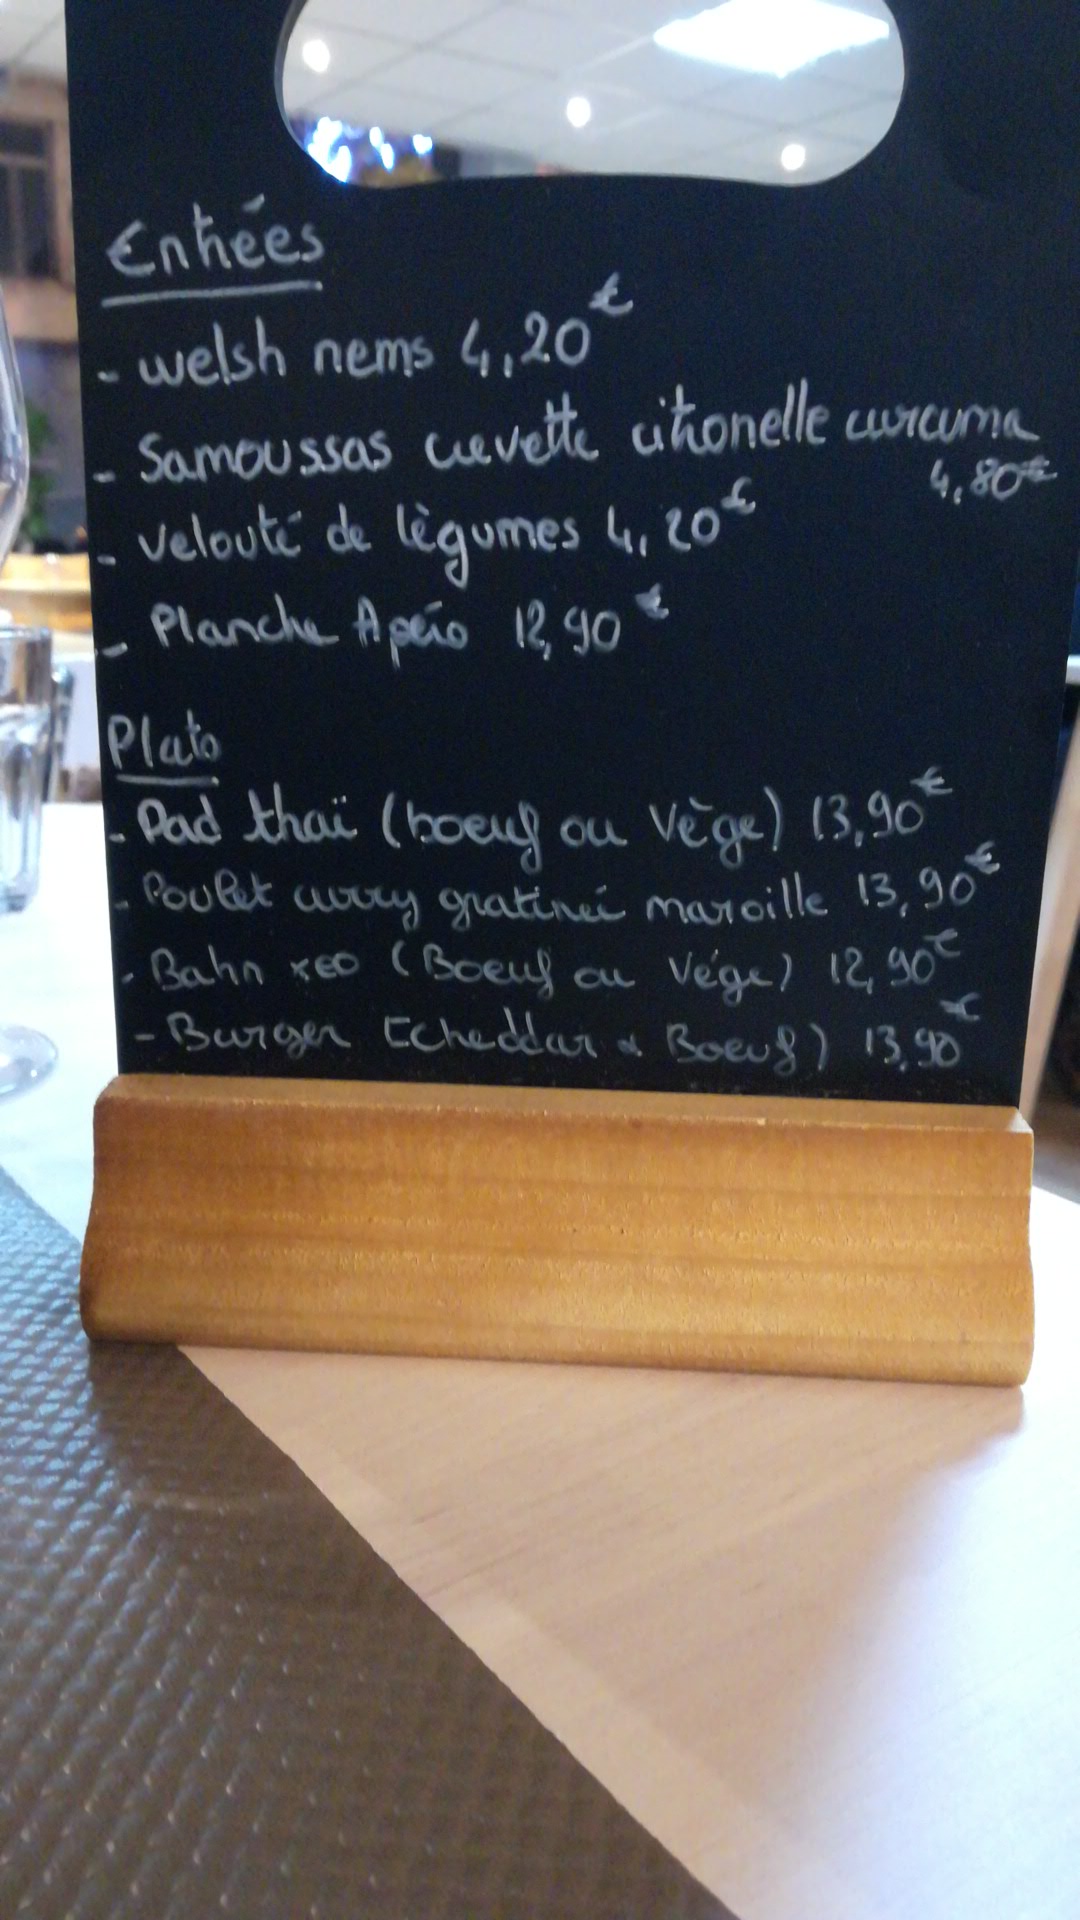 Entrées
- welsh nems 4,20€
- Samoussas crevette citronelle curcuma
4,80€
- velouté de lègumes 4,20€
- Planche Apéro 12,90€
Plats
- Pad thaï (boeuf ou Vège) 13,90€
- Poulet curry gratineé maroille 13,90€
- Bahn xeo (Boeuf ou Végé) 12,90€
- Burger (cheddar & Boeuf) 13,90€